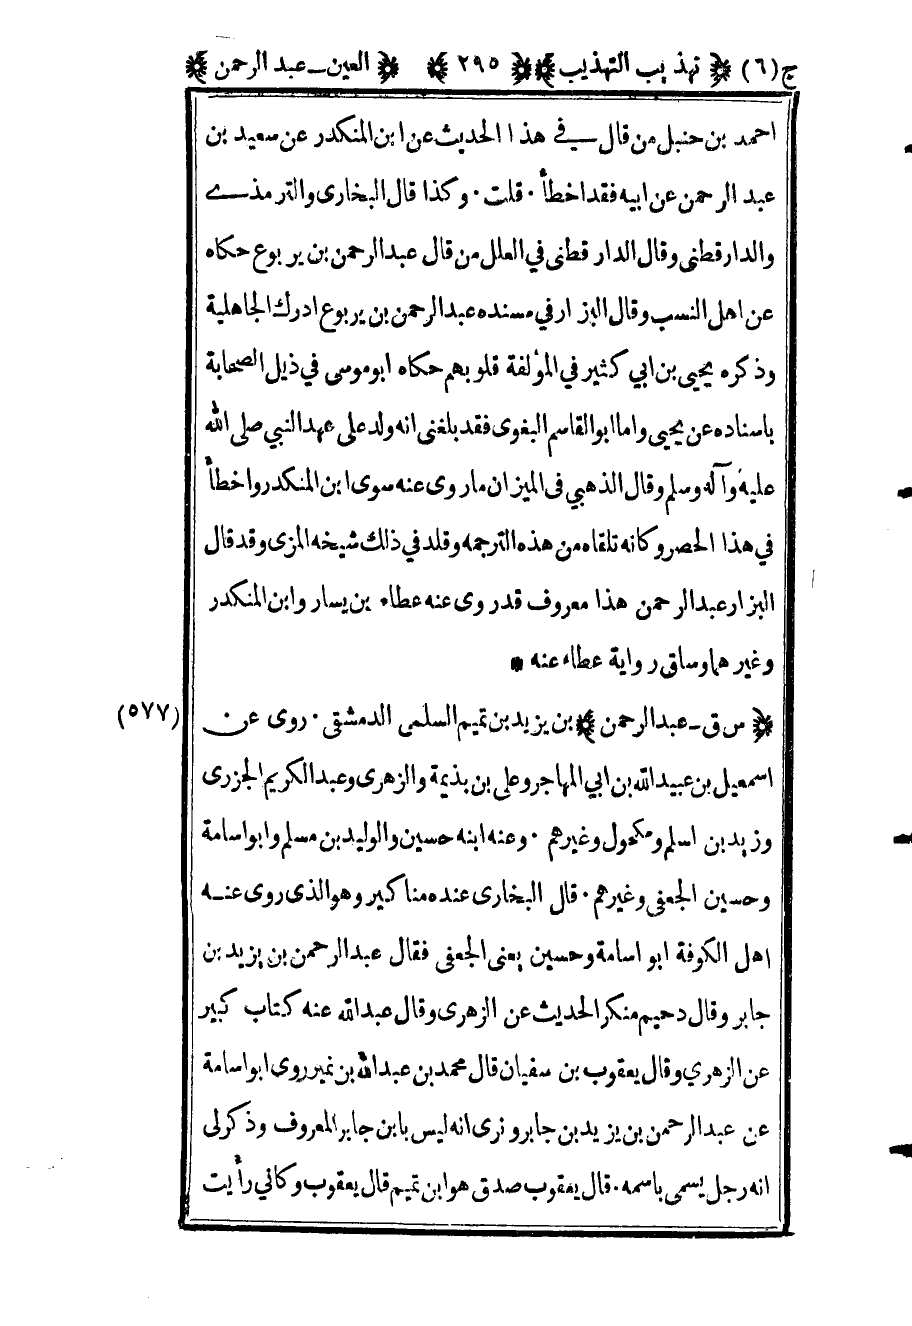 ج(٦) ﴿ تهذيب التهذيب ﴾ ﴿ ٢٩٥ ﴾ ﴿ العين ـ عبد الرحمن ﴾
احمد بن حنبل من قال في هذا الحديث عن ابن المنكدر عن سعيد بن
عبد الرحمن عن ابيه فقد اخطأ · قلت · وكذا قال البخارى والترمذى
والدارقطنى وقال الدار قطنى في العلل من قال عبدالرحمن بن يربوع حكاه
عن اهل النسب وقال البزار في مسنده عبدالرحمن بن يربوع ادرك الجاهلية
وذكره يحيى بن ابي كثير في المؤلفة قلوبهم حكاه ابوموسى في ذيل الصحابة
باسناده عن يحيى واما ابوالقاسم البغوى فقد بلغنى انه ولد على عهد النبي صلى الله
عليه وآله وسلم وقال الذهبي فى الميزان ماروى عنه سوى ابن المنكدر واخطأ
في هذا الحصر وكانه تلقاه من هذه الترجمه وقلد في ذلك شيخه المزى وقد قال
البزار عبدالرحمن هذا معروف قدروى عنه عطاء بن يسار وابن المنكدر
وغيرهما وساق رواية عطاء عنه *
﴿ س ق ـ عبدالرحمن ﴾ بن يزيد بن تميم السلمى الدمشقى · روى عن (٥٧٧)
اسمعيل بن عبيد الله بن ابي المهاجر وعلى بن بذيمة والزهرى وعبدالكريم الجزرى
وزيد بن اسلم ومكحول وغيرهم · وعنه ابنه حسين والوليد بن مسلم وابواسامة
وحسين الجعفى وغيرهم · قال البخارى عنده مناكير وهو الذى روى عنه
اهل الكوفة ابو اسامة وحسين يعنى الجعفى فقال عبدالرحمن بن يزيد بن
جابر وقال دحيم منكر الحديث عن الزهرى وقال عبدالله عنه كتاب كبير
عن الزهري وقال يعقوب بن سفيان قال محمد بن عبدالله بن نمير روى ابواسامة
عن عبدالرحمن بن يزيد بن جابر ونرى انه ليس بابن جابر المعروف وذكرلى
انه رجل يسمى باسمه · قال يعقوب صدق هو ابن تميم قال يعقوب وكاني رأيت